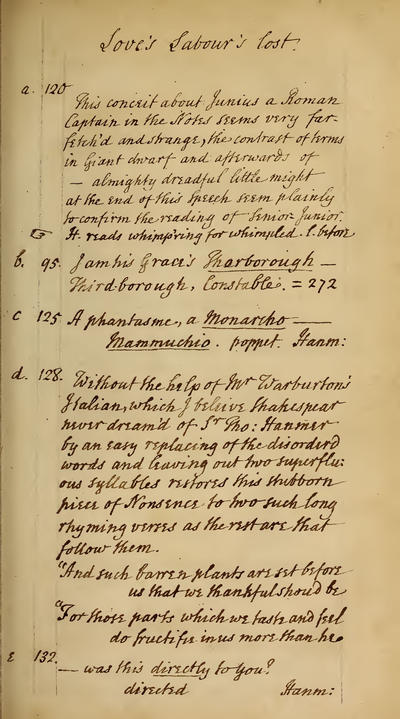 Love's Labour's lost.
a. 120
This conceit about Junius a Roman
Captain in the Notes seems very far-
fetch'd and strange, the contrast of terms
in Giant dwarf and afterwards of
— almighty dreadful little might
at the end of this speech seem plainly
to confirm the reading of Senior Junior.
☞ H. reads whimp'ring for whimpled. l. before
b. 95. I am his Grace's Tharborough —
Thirdborough, Constable. = 272
c 125 A phantasme, a Monarcho —
Mammuchio. poppet. Hanm:
d. 128. Without the help of Mr Warburton's
Italian, which I believe Shakespear
never dream'd of Sr Tho: Hanmer
by an easy replacing of the disorder'd
words and leaving out two superflu:
ous syllables restores this stubborn
piece of Nonsence to two such long
rhyming verses as the rest are that
follow them.
"And such barren plants are set before
us that we thankful should be
"For those parts which we taste and feel
do fructifie in us more than he
E 132.
— was this directly to you?
directed Hanm: